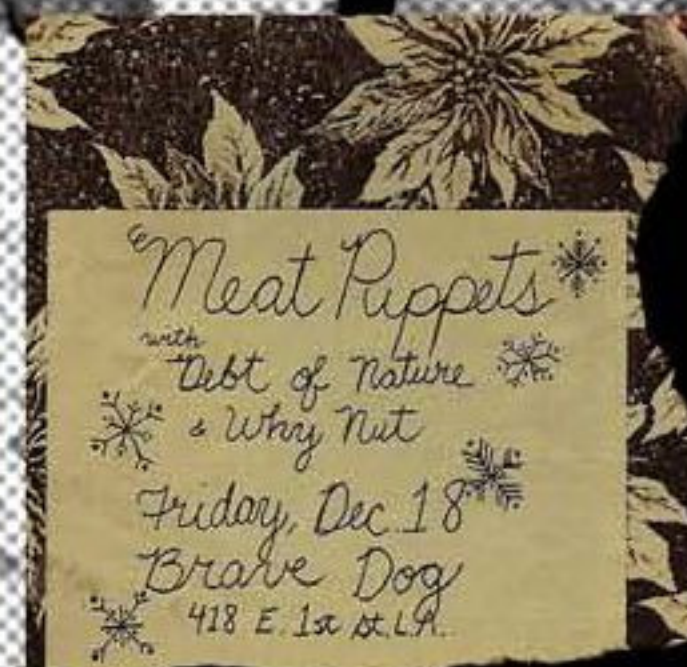 Meat Puppets
with
Debt of Nature
& Why Nut
Friday, Dec. 18
Brave Dog
418 E. 1st St. L.A.